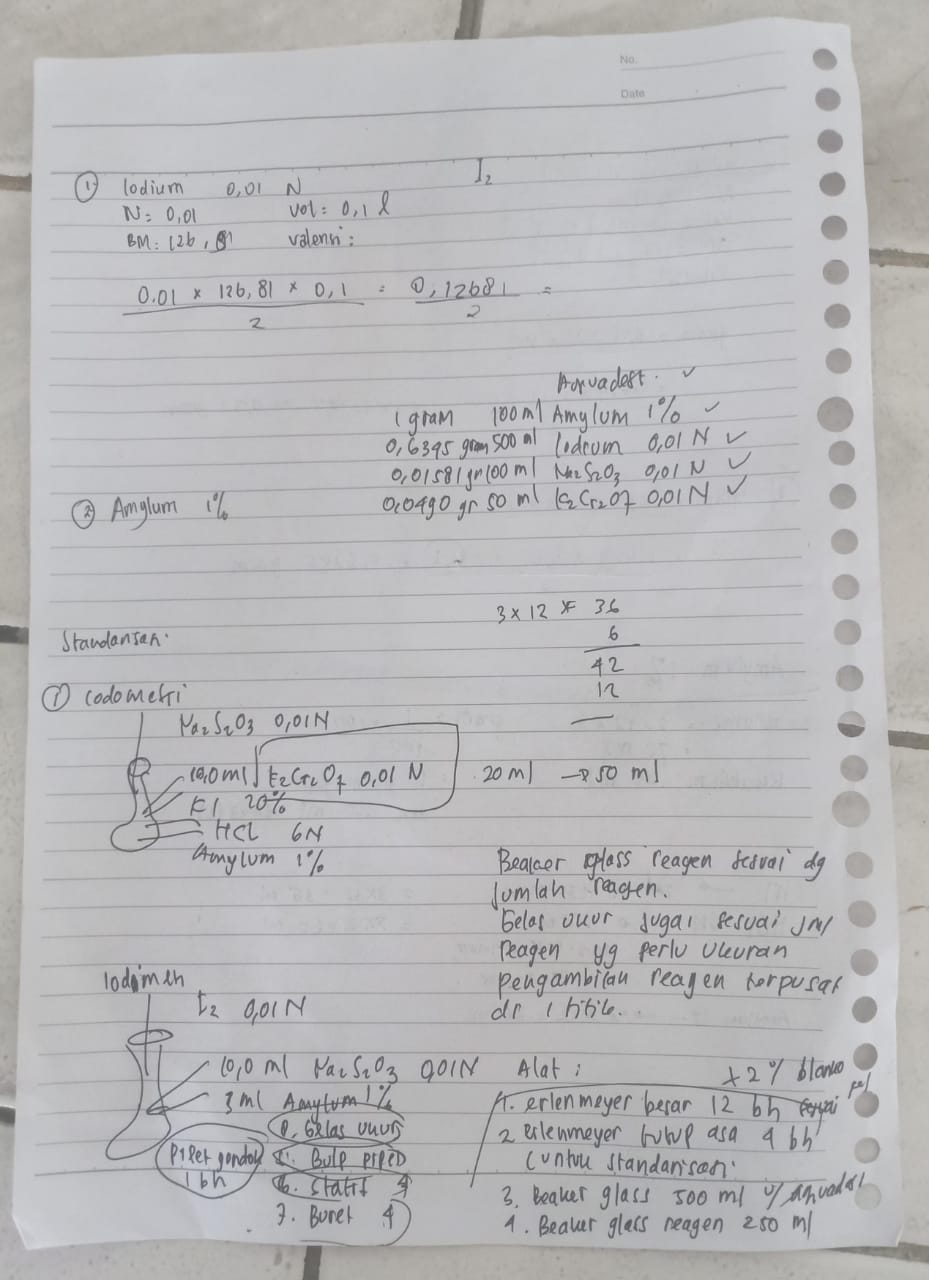 No.
Date
① Iodium 0,01 N I₂
N = 0,01 vol = 0,1 l
BM = 126, valensi :
0.01 × 126,81 × 0,1 = 0,12681 =
2 2
Aquadest. ✓
1 gram 100 ml Amylum 1% ✓
0,6395 gram 500 ml Iodium 0,01 N ✓
0,01581 gr 100 ml Na₂S₂O₃ 0,01 N ✓
0,0490 gr 50 ml K₂Cr₂O7 0,01 N ✓
② Amylum 1%
3 x 12 = 36
6
Standarisasi.
42
12
① Iodometri
Na₂S₂O3 0,01 N
10,0 ml K₂Cr₂O7 0,01 N 20 ml → 50 ml
KI 20%
HCl 6N
Amylum 1%
Beaker glass reagen sesuai dg
jumlah reagen.
Gelas ukur juga sesuai jml
reagen yg perlu ukuran
pengambilan reagen terpusat
di 1 titik.
Iodimetri
I₂ 0,01 N
10,0 ml Na₂S₂O3 0,01N
3 ml Amylum 1%
Alat : + 2 blanko
1. erlenmeyer besar 12 bh
2 erlenmeyer tutup asa 4 bh
(untuk standarisasi.
3. Beaker glass 500 ml u/ aquadest
4. Beaker glass reagen 250 ml
Gelas ukur
Bulp piped
6. Statif 4
7. Buret 4
Pipet gondok
1 bh